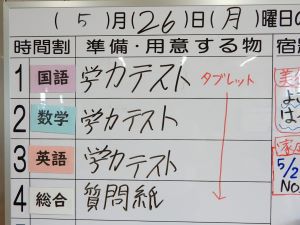 (5)月(26)日(月)曜日の
時間割 準備・用意する物 宿題
1 国語 学力テスト タブレット
2 数学 学力テスト
3 英語 学力テスト
4 総合 質問紙
5/2
No.